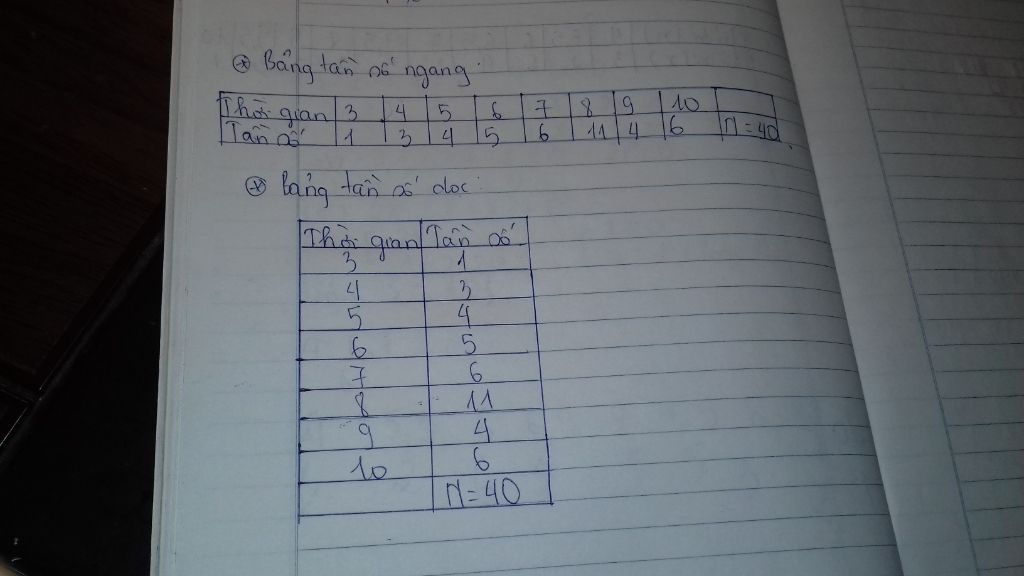 * Bảng tần số ngang:
Thời gian 3 4 5 6 7 8 9 10
Tần số 1 3 4 5 6 11 4 6 N = 40
* Bảng tần số dọc:
Thời gian Tần số
3 1
4 3
5 4
6 5
7 6
8 11
9 4
10 6
N = 40